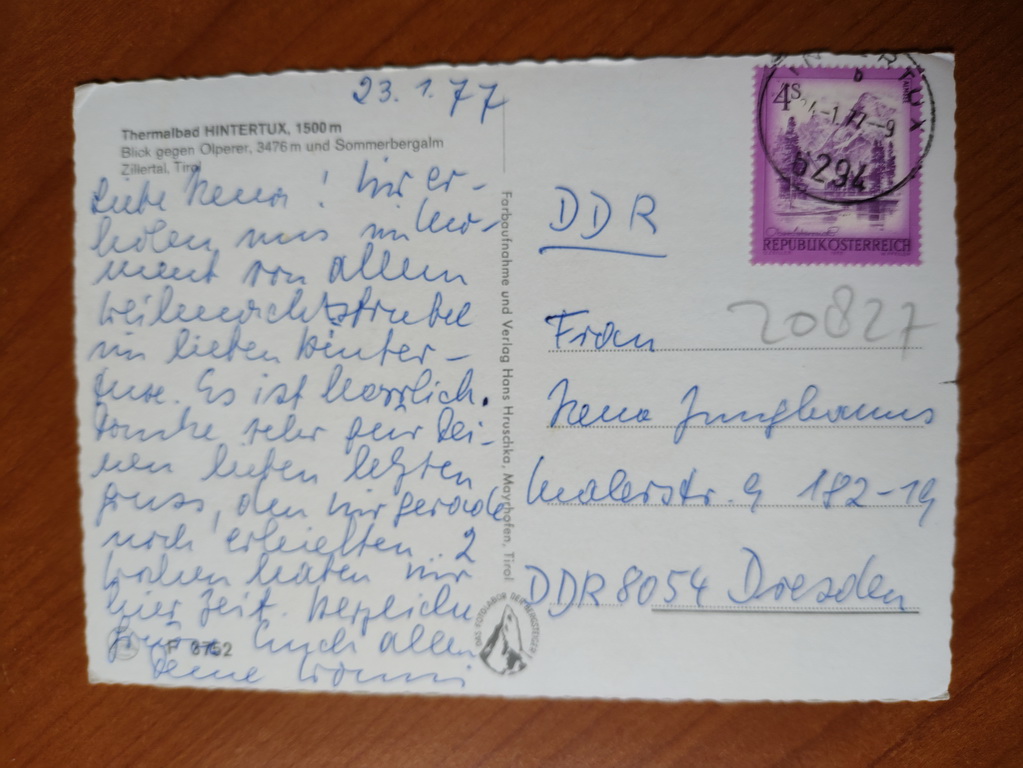 23.1.77
Thermalbad HINTERTUX, 1500 m
Blick gegen Olperer, 3476 m und Sommerbergalm
Zillertal, Tirol
Liebe ! Wir er-
holen uns im Mo-
ment von allem
Weihnachtstrubel
im lieben Hinter-
tux. Es ist herrlich.
Danke sehr für Dei-
nen lieben letzten
Gruss, den wir gerade
noch erhielten. 2
Wochen haben wir
hier Zeit. Herzliche
Grüsse Euch allen
Deine
P 6752
Farbaufnahme und Verlag Hans Hruschka, Mayrhofen, Tirol
DAS FOTOLABOR DER BERGSTEIGER
4S
REPUBLIK ÖSTERREICH
HINTERTUX
b
24.-1.77-9
6294
DDR
20827
Frau
Junghanns
Malerstr. 9 182-19
DDR 8054 Dresden